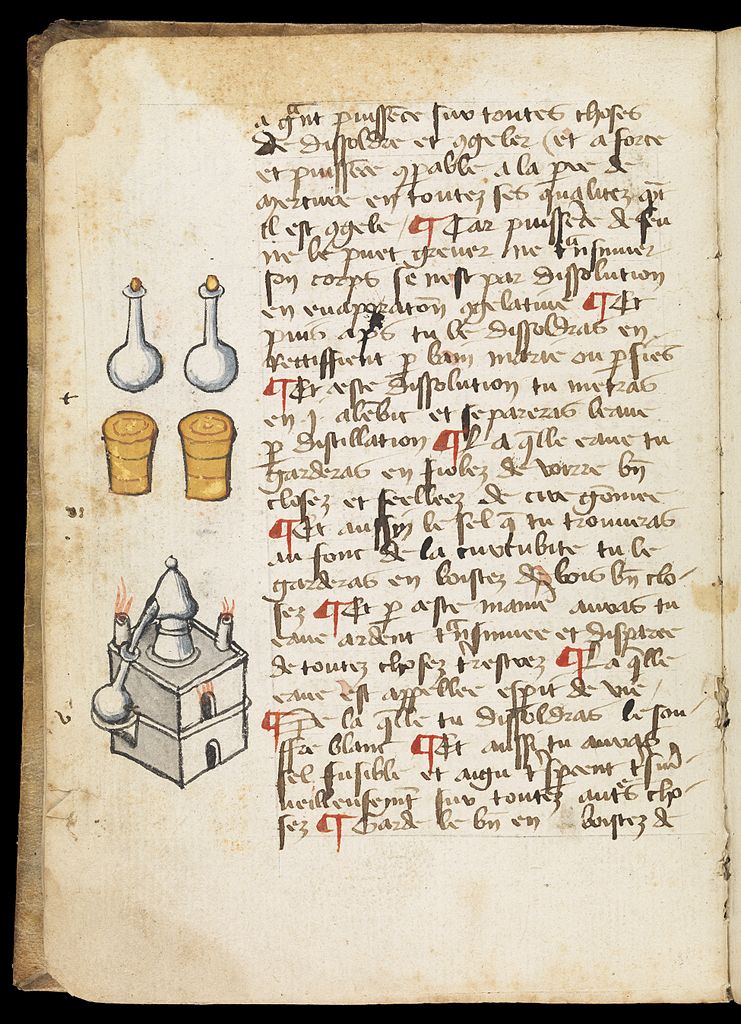 a grant puissece sur toutes choses
de dissoldre et ꝯgeler et a force
et puissece ꝯparable a la pree de
mercure en toutez ses qualitez qt
il est ꝯgele ¶ Car puissece de feu
ne le puet grever ne tnsmuer
son corps se nest par dissolution
en evaporaton ꝯgelative ¶ Et
puis aps tu le dissoldras en
rettiffient ꝑ bain marie ou ꝑ fiens
¶ Et ceste dissolution tu metras
en j. alebic et separeras leaue
ꝑ distillation ¶ La qlle eaue tu
garderas en fiolez de voirre bn
closez et seelleez de cire gomee
¶ Et aussy le sel q tu trouveras
au fons de la cucurbite tu le
garderas en boistez de bois bn clo-
sez ¶ Et ꝑ ceste manie auras tu
eaue ardent tnsmuee et disparee
de toutez chosez trestvez ¶ La qlle
eaue est appellee espit de vie
¶ De la qlle tu dissoldras le sou-
ffre blanc ¶ Et aussi tu auras
sel fusible et aigu
sur toutez autes cho-
sez ¶ Garde le bn en boistez de